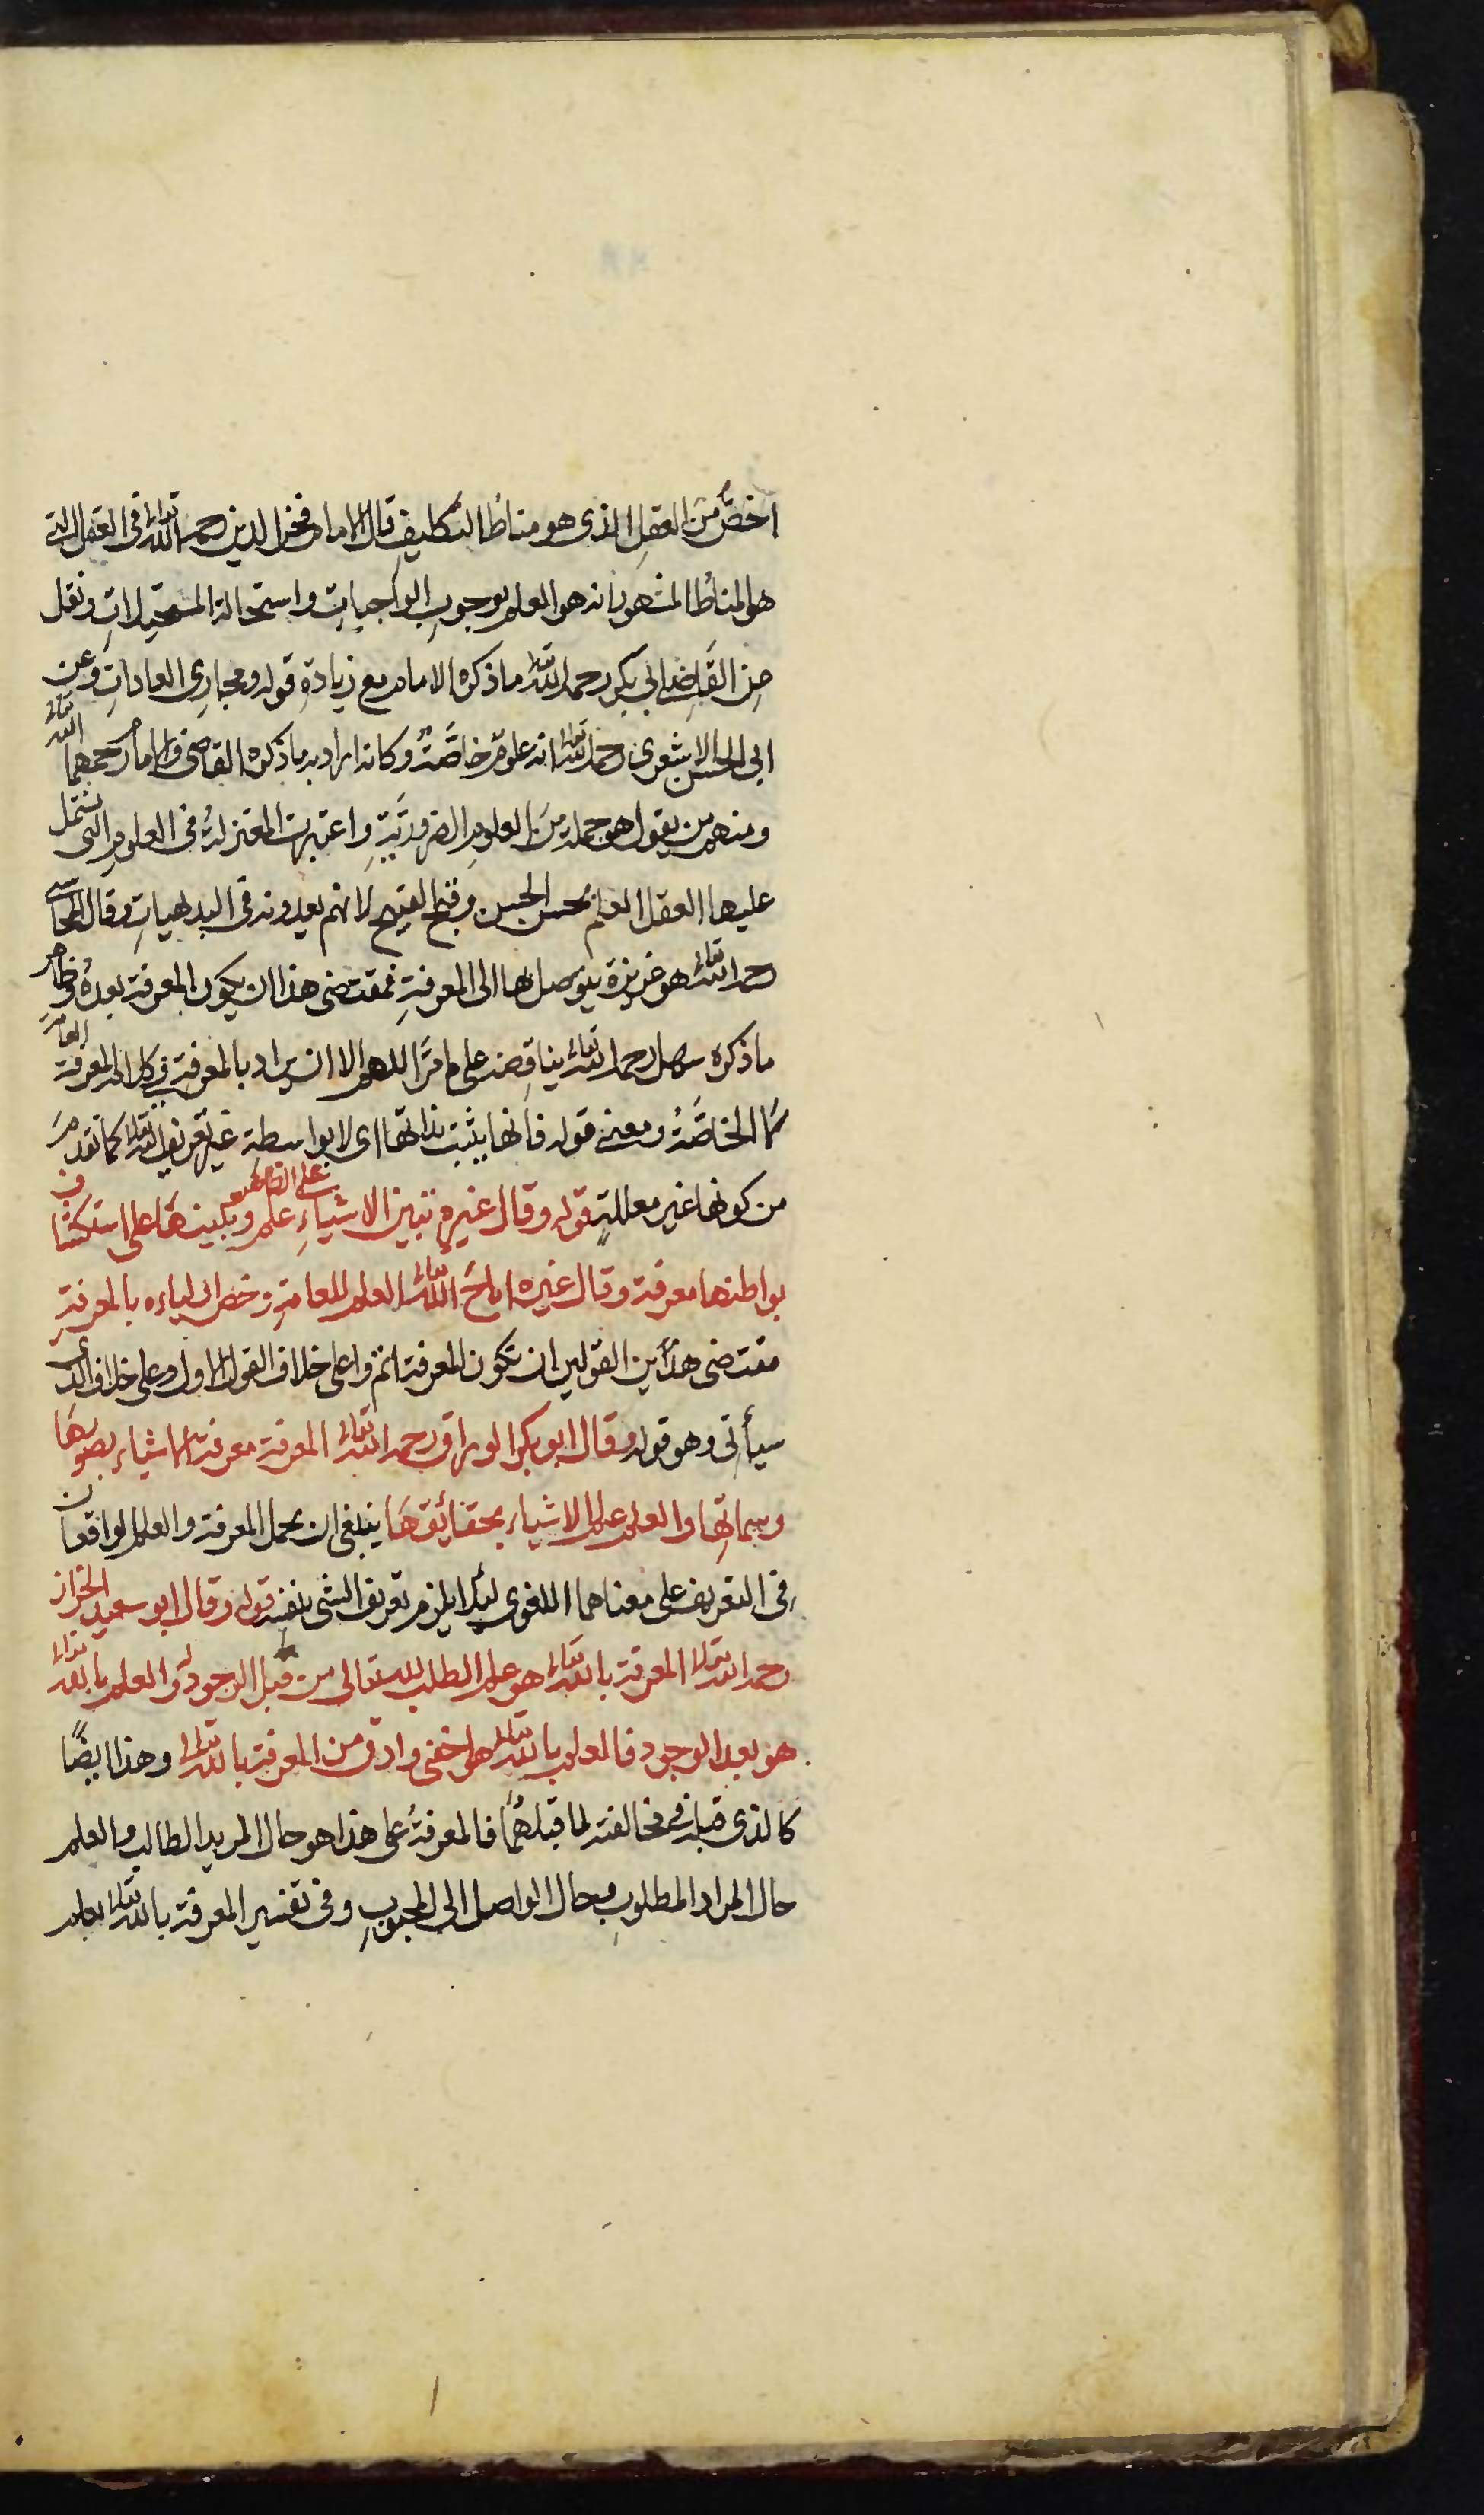 اخصُّ من العقلِ الذى هو مناطُ التكليفِ قال الامام فخر الدين رحمه الله تعالى فى العقل الذى
هو المناطُ المشهور انه هو العلم بوجوبِ الواجباتِ واستحالة المستحيلاتِ ونقل
عن القاضى ابى بكر رحمه الله تعالى ما ذكره الامام مع زيادةِ قوله ومجارى العاداتِ وعن
ابى الحسن الاشعرى رحمه الله تعالى انه علومٌ خاصَّةٌ وكانه اراد به ما ذكره القاضى والامام رحمهما الله تعالى
ومنهم من يقول هو جملة من العلومِ الضروريَّةِ واعتبرت المعتزلةُ فى العلومِ التى تشتمل
عليها العقل العلم بحسن الحسن وقبح القبيح لانهم يعدونه فى البديهياتِ وقال المحاسبى
رحمه الله تعالى هو غريزة يتوصل بها الى المعرفةِ فمقتضى هذا ان يكون المعرفة بعدهُ وظاهر
ما ذكره سهل رحمه الله تعالى يناقضه على ما مرَّ اللهم الا ان يراد بالمعرفة فى كلامه المعرفة العامة
لا الخاصَّةُ ومعنى قوله فانها يثبت بذاتها اى لا بواسطة غير تعريف الله تعالى كما تقدم
من كونها غير معللةٍ قوله وقال غيره تبين الاشياءِ على الظاهر علم وتبينها على استكشاف
بواطنها معرفة وقال غيره اباحَ الله تعالى العلم للعامةِ وخص اولياءه بالمعرفةِ
مقتضى هذَين القولين ان تكون المعرفة اتم واعلى خلاف القول الاول وعلى خلاف الذى
سيأتى وهو قوله وقال ابو بكر الوراق رحمه الله تعالى المعرفة معرفة الاشياء بصورها
وسماتها والعلم علم الاشياء بحقائقها ينبغى ان يحمل المعرفة والعلم الواقعان
فى التعريف على معناهما اللغوى لئلا يلزم تعريف الشى بنفسه قوله وقال ابو سعيد الخراز
رحمه الله تعالى المعرفة بالله تعالى هو علم الطلب لله تعالى من قبل الوجود له والعلم بالله تعالى
هو بعد الوجود فالعلم بالله تعالى هو اخفى وادق من المعرفة بالله تعالى وهذا ايضًا
كالذى قبله فى مخالفته لما قبلهما فالمعرفةُ على هذا هو حال المريد الطالب والعلم
حال المراد المطلوبِ وحال الواصل الى المحبوبِ وفى تفسير المعرفة بالله تعالى بعلم